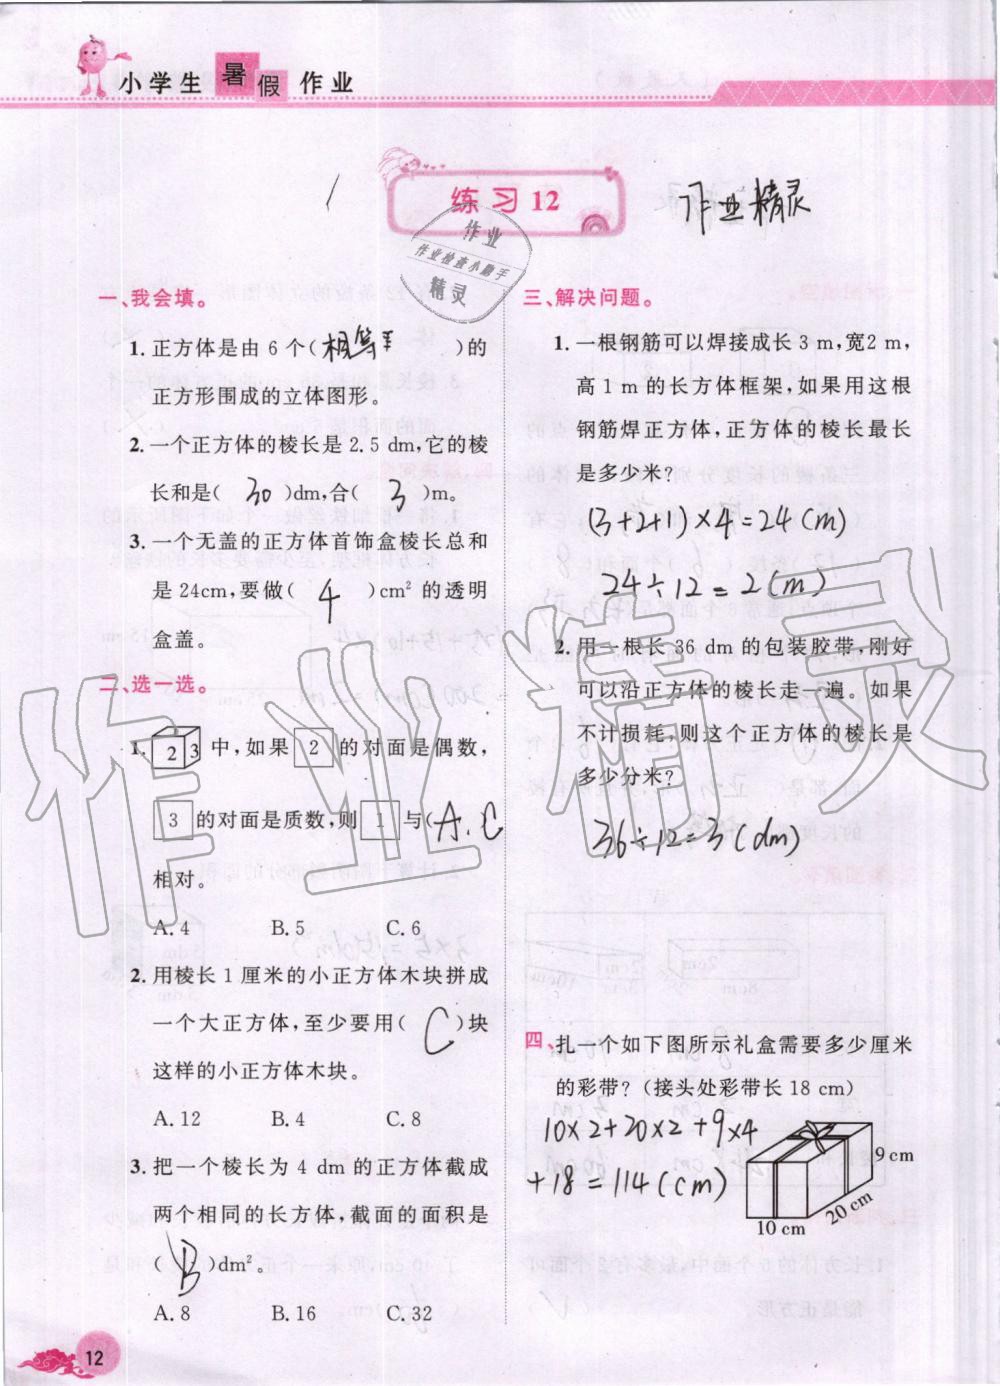 小学生 暑假 作业
练习12
作业精灵
作业
作业检查小助手
精灵
一、我会填。
1. 正方体是由 6 个( 相等 )的
正方形围成的立体图形。
2. 一个正方体的棱长是 2.5 dm,它的棱
长和是( 30 )dm,合( 3 )m。
3. 一个无盖的正方体首饰盒棱长总和
是 24cm,要做( 4 )cm² 的透明
盒盖。
二、选一选。
1. 2 3 中,如果 2 的对面是偶数,
3 的对面是质数,则 1 与( A、C
相对。
A. 4 B. 5 C. 6
2. 用棱长 1 厘米的小正方体木块拼成
一个大正方体,至少要用( C )块
这样的小正方体木块。
A. 12 B. 4 C. 8
3. 把一个棱长为 4 dm 的正方体截成
两个相同的长方体,截面的面积是
( B )dm²。
A. 8 B. 16 C. 32
三、解决问题。
1. 一根钢筋可以焊接成长 3 m,宽2 m,
高 1 m 的长方体框架,如果用这根
钢筋焊正方体,正方体的棱长最长
是多少米?
(3+2+1)×4=24(m)
24÷12=2(m)
2. 用一根长 36 dm 的包装胶带,刚好
可以沿正方体的棱长走一遍。如果
不计损耗,则这个正方体的棱长是
多少分米?
36÷12=3(dm)
四、扎一个如下图所示礼盒需要多少厘米
的彩带?(接头处彩带长 18 cm)
10×2+20×2+9×4
+18=114(cm)
9 cm
20 cm
10 cm
作业精灵
12